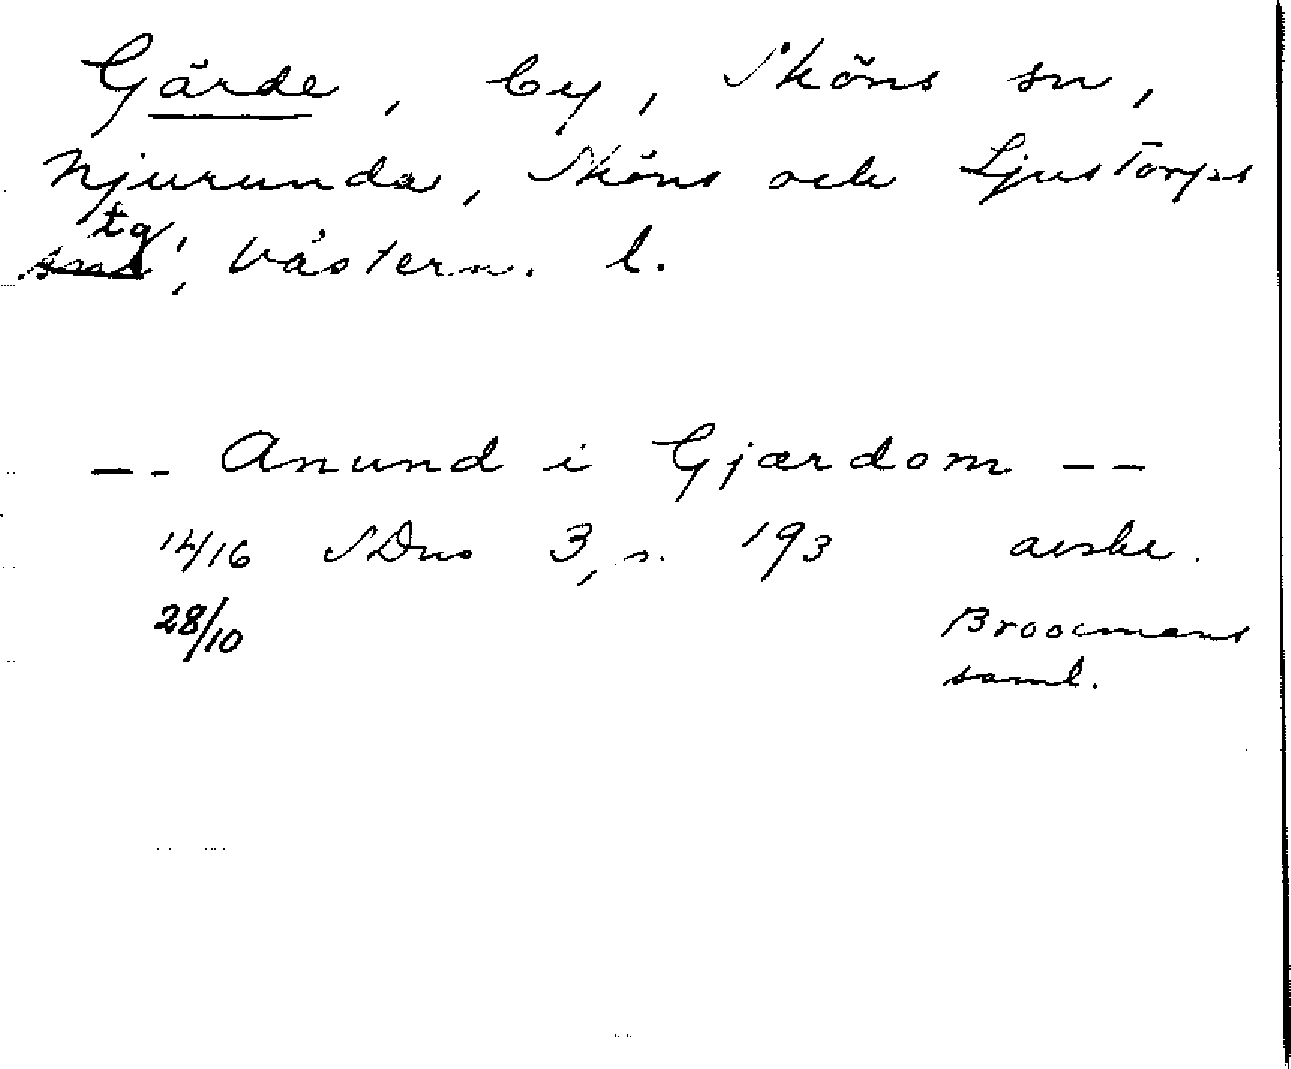 Gärde, by, Sköns sn,
Njurunda, Sköns och Ljustorps
tg, Västern. l.
-- Anund i Gjærdom --
1416 SDns 3, s. 193 avskr.
28/10 Broocmans
saml.